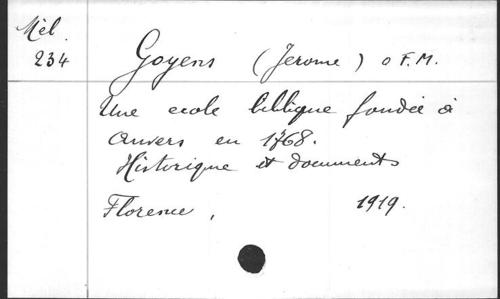 Mél.
234
Goyens (Jerome) O F.M.
Une ecole biblique fondée à
Anvers en 1768.
Historique et documents
Florence, 1919.